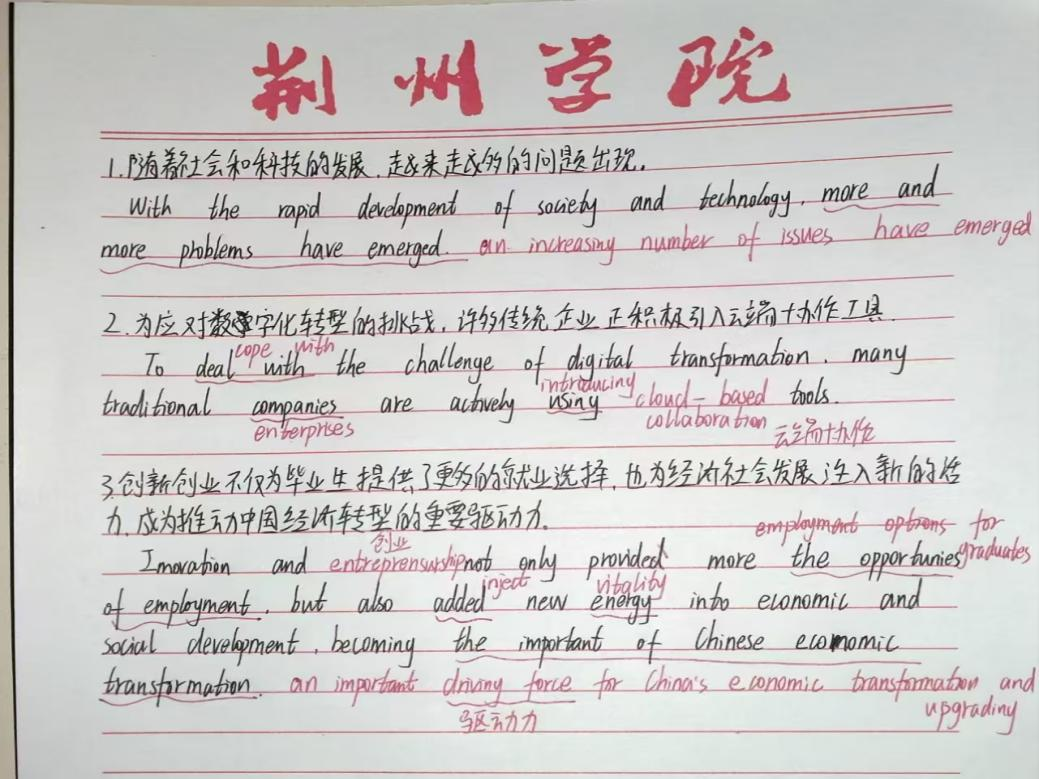 荆州学院
1.随着社会和科技的发展,越来越多的问题出现.
With the rapid development of society and technology, more and
more problems have emerged. an increasing number of issues have emerged
2.为应对数字化转型的挑战,许多传统企业正积极引入云端协作工具.
cope with
To deal with the challenge of digital transformation, many
introducing
traditional companies are actively using cloud-based tools.
enterprises collaboration 云端协作
3.创新创业不仅为毕业生提供了更多的就业选择,也为经济社会发展注入新的活
力,成为推动中国经济转型的重要驱动力.
employment options for
创业
Innovation and entreprensurship not only provided more the opportunies graduates
inject vitality
of employment, but also added new energy into economic and
social development, becoming the important of Chinese economic
transformation. an important driving force for China's economic transformation and
驱动力 upgrading